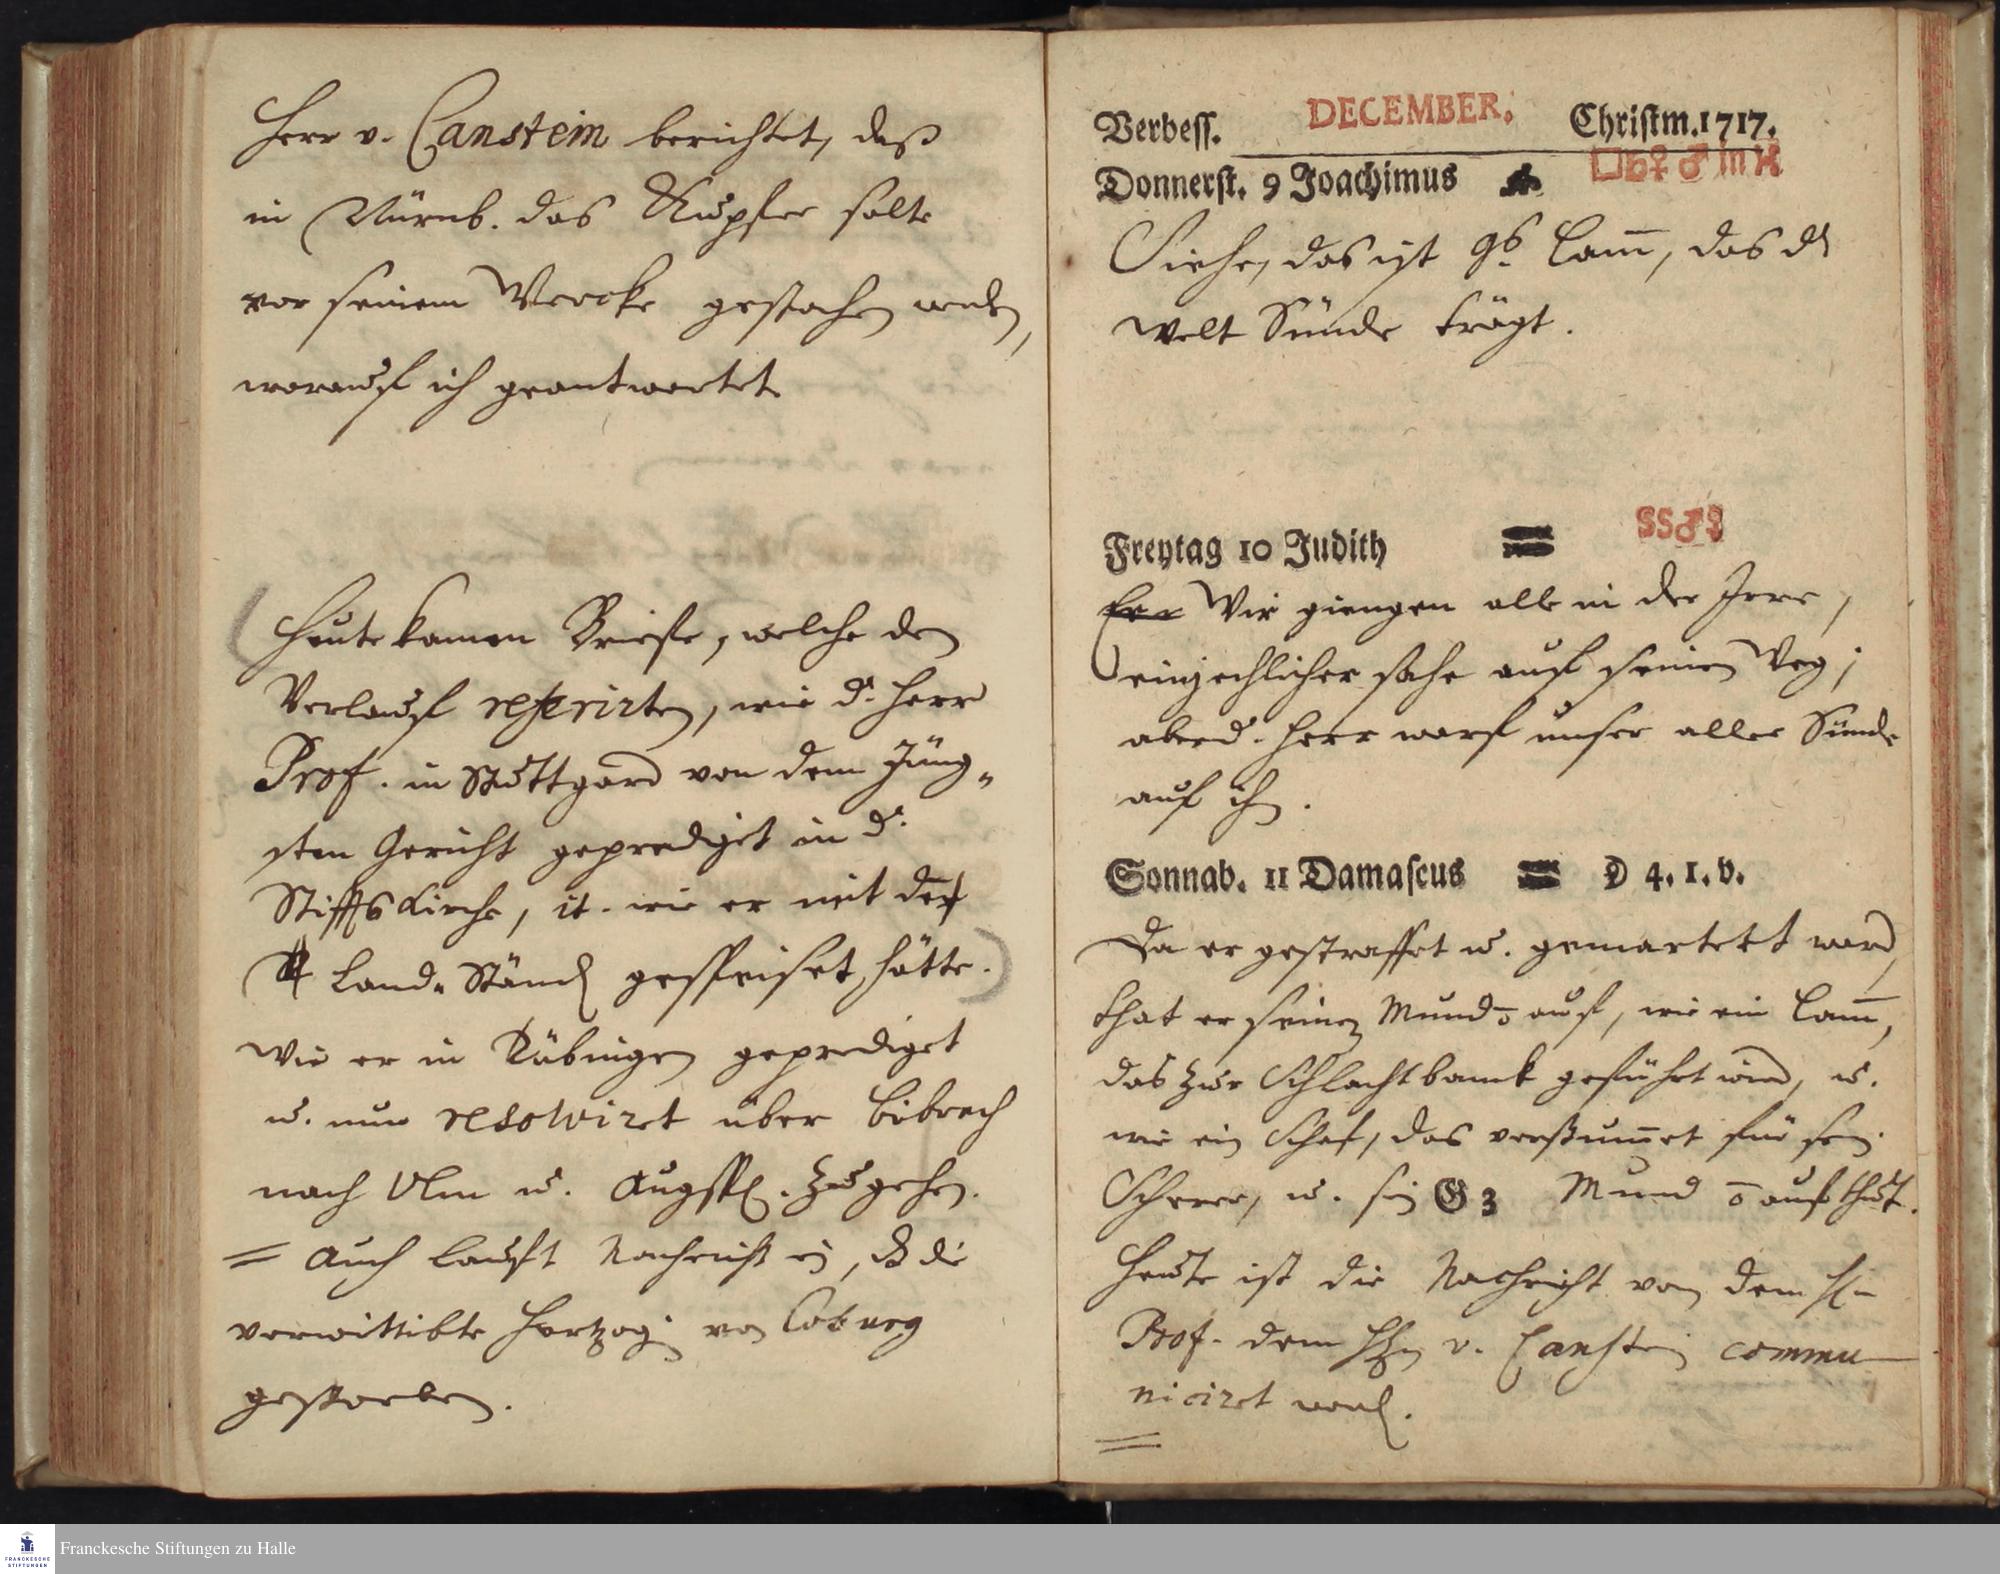 Herr v. Canstein berichtet, daß
in Nürnb. das Kupfer solte
vor seinem Wercke gestochen werden,
worauf ich geantwortet.
Heute kamen Briefe, welche den
Verlauf referirten, wie d. Herr
Prof. in Stuttgard von dem Jüng-
sten Gericht geprediget in d.
Stifftskirche, it. wie er mit den
Land-Ständen gespeiset hätte.
Wie er in Tübingen geprediget
u. nun resolviret über Bibrach
nach Ulm u. Augsp. zu gehen.
= Auch laufft Nachricht ein, daß die
verwittibte Hertzogin von Coburg
gestorben.
Verbess. DECEMBER. Christm. 1717.
Donnerst. 9 Joachimus □♄♀ ♂ in ♓
Siehe, das ist Gs. Lam̅, das der
Welt Sünde trägt.
Freytag 10 Judith SS♂☿
Wir giengen alle in der Irre,
ein jeglicher sahe auf seinen Weg;
aber d. Herr warf unser aller Sünde
auf ihn.
Sonnab. 11 Damascus ☽ 4. 1. v.
Da er gestraffet u. gemartert ward,
that er seinen Mund o̅ auf, wie ein Lam̅,
das zur Schlachtbanck geführt wird, u.
wie ein Schaf, das verstum̅et für sein.
Scherer, u. sein G 3 Mund o̅ aufthut.
Heute ist die Nachricht von dem Hn
Prof. dem Hn v. Canstein commu-
niciret word.